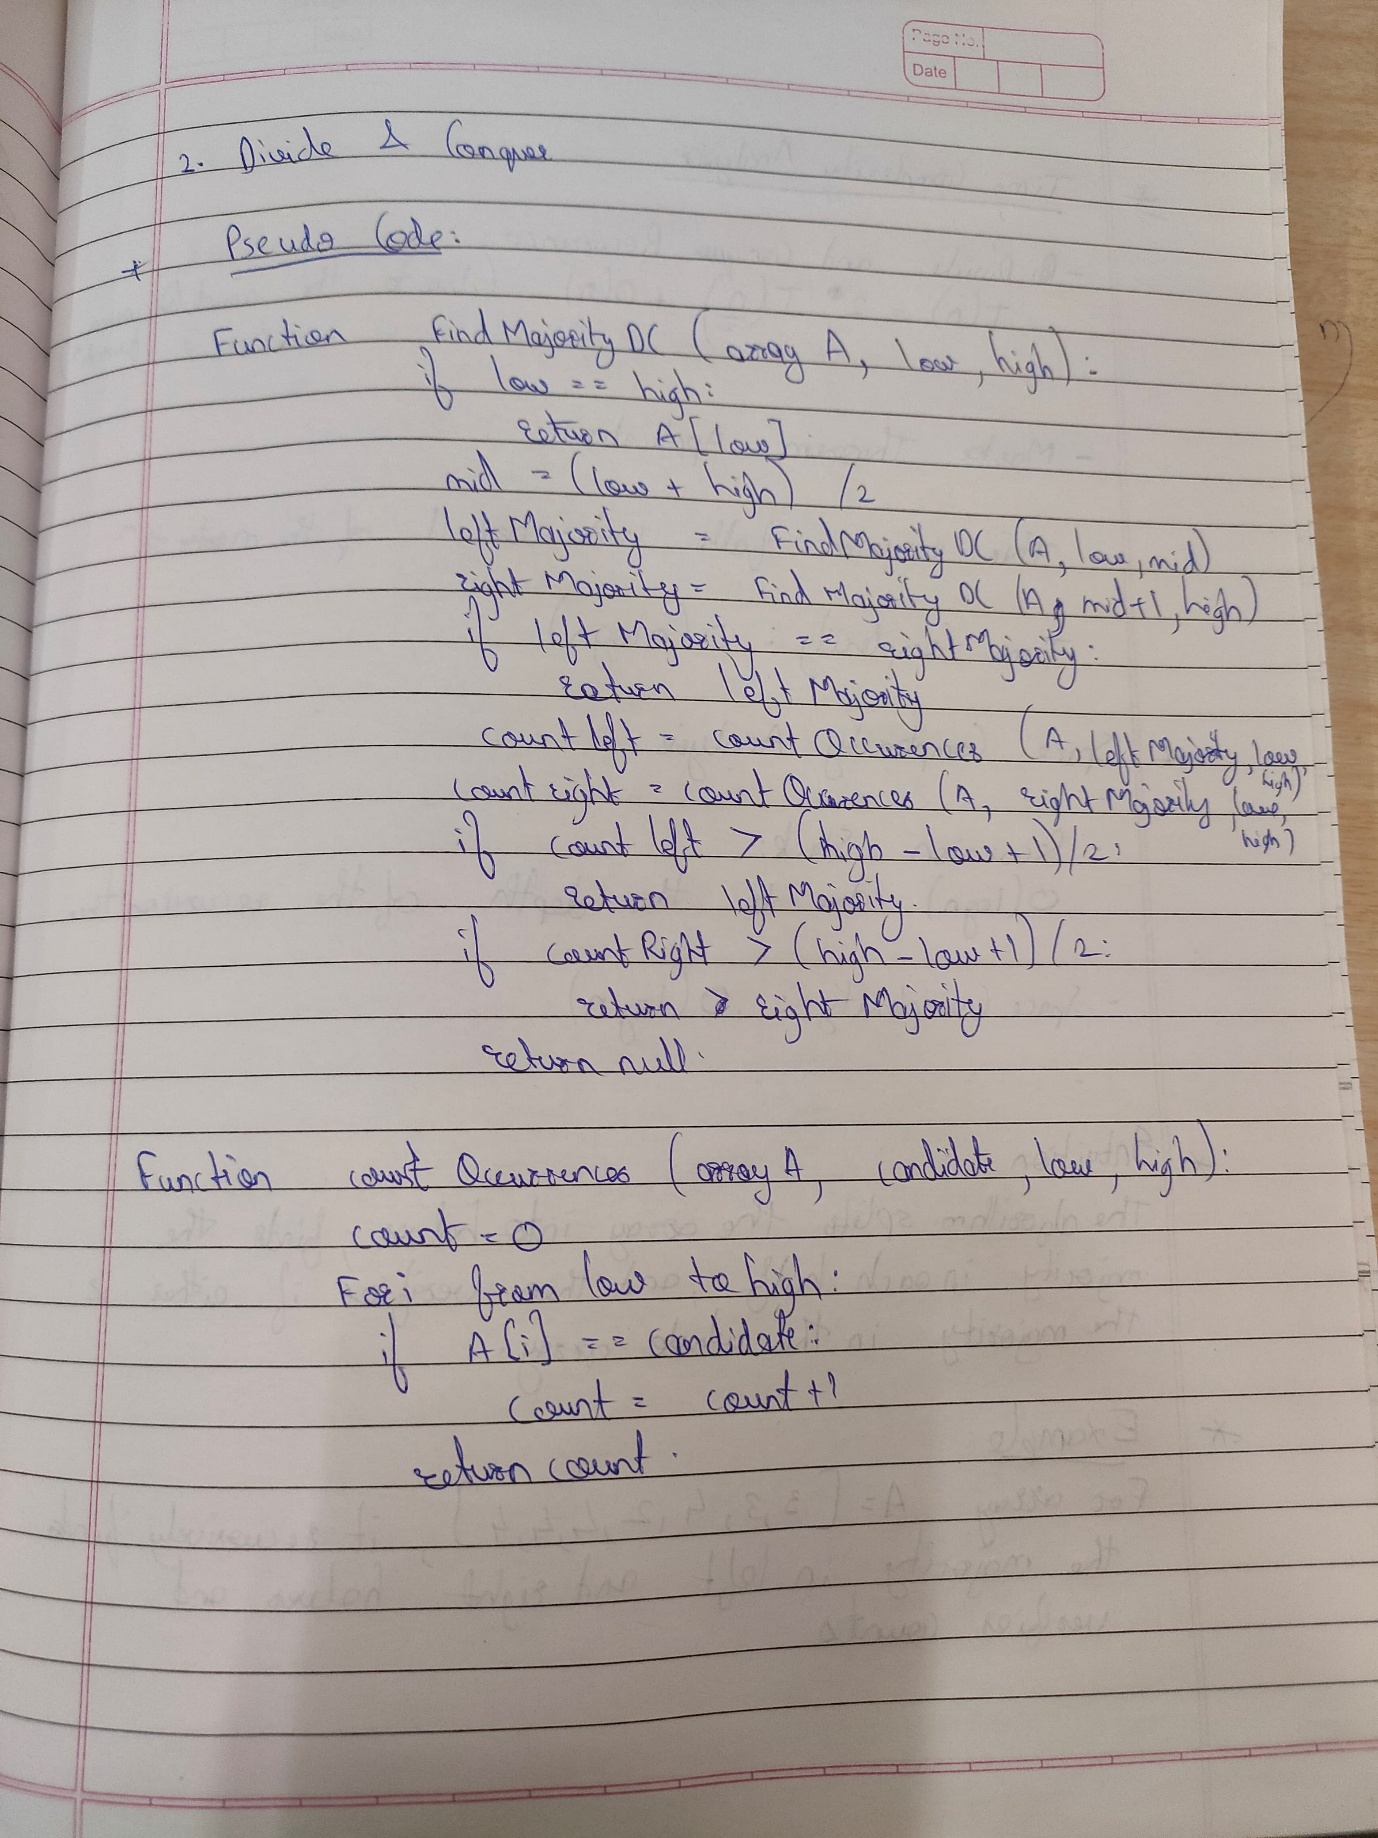 Page No.
Date
2. Divide & Conquer
* Pseudo Code:
Function Find Majority DC (array A, low, high):
if low == high:
return A[low]
mid = (low + high) /2
left Majority = Find Majority DC (A, low, mid)
right Majority = Find Majority DC (A, mid+1, high)
if left Majority == right Majority:
return left Majority
count left = count Occurences (A, left Majority, low, high)
count right = count Occurences (A, right Majority, low, high)
if count left > (high - low + 1)/2:
return left Majority.
if count Right > (high - low + 1)/2:
return right Majority
return null.
Function count Occurrences (array A, candidate, low, high):
count = 0
For i from low to high:
if A[i] == candidate:
count = count +1
return count.